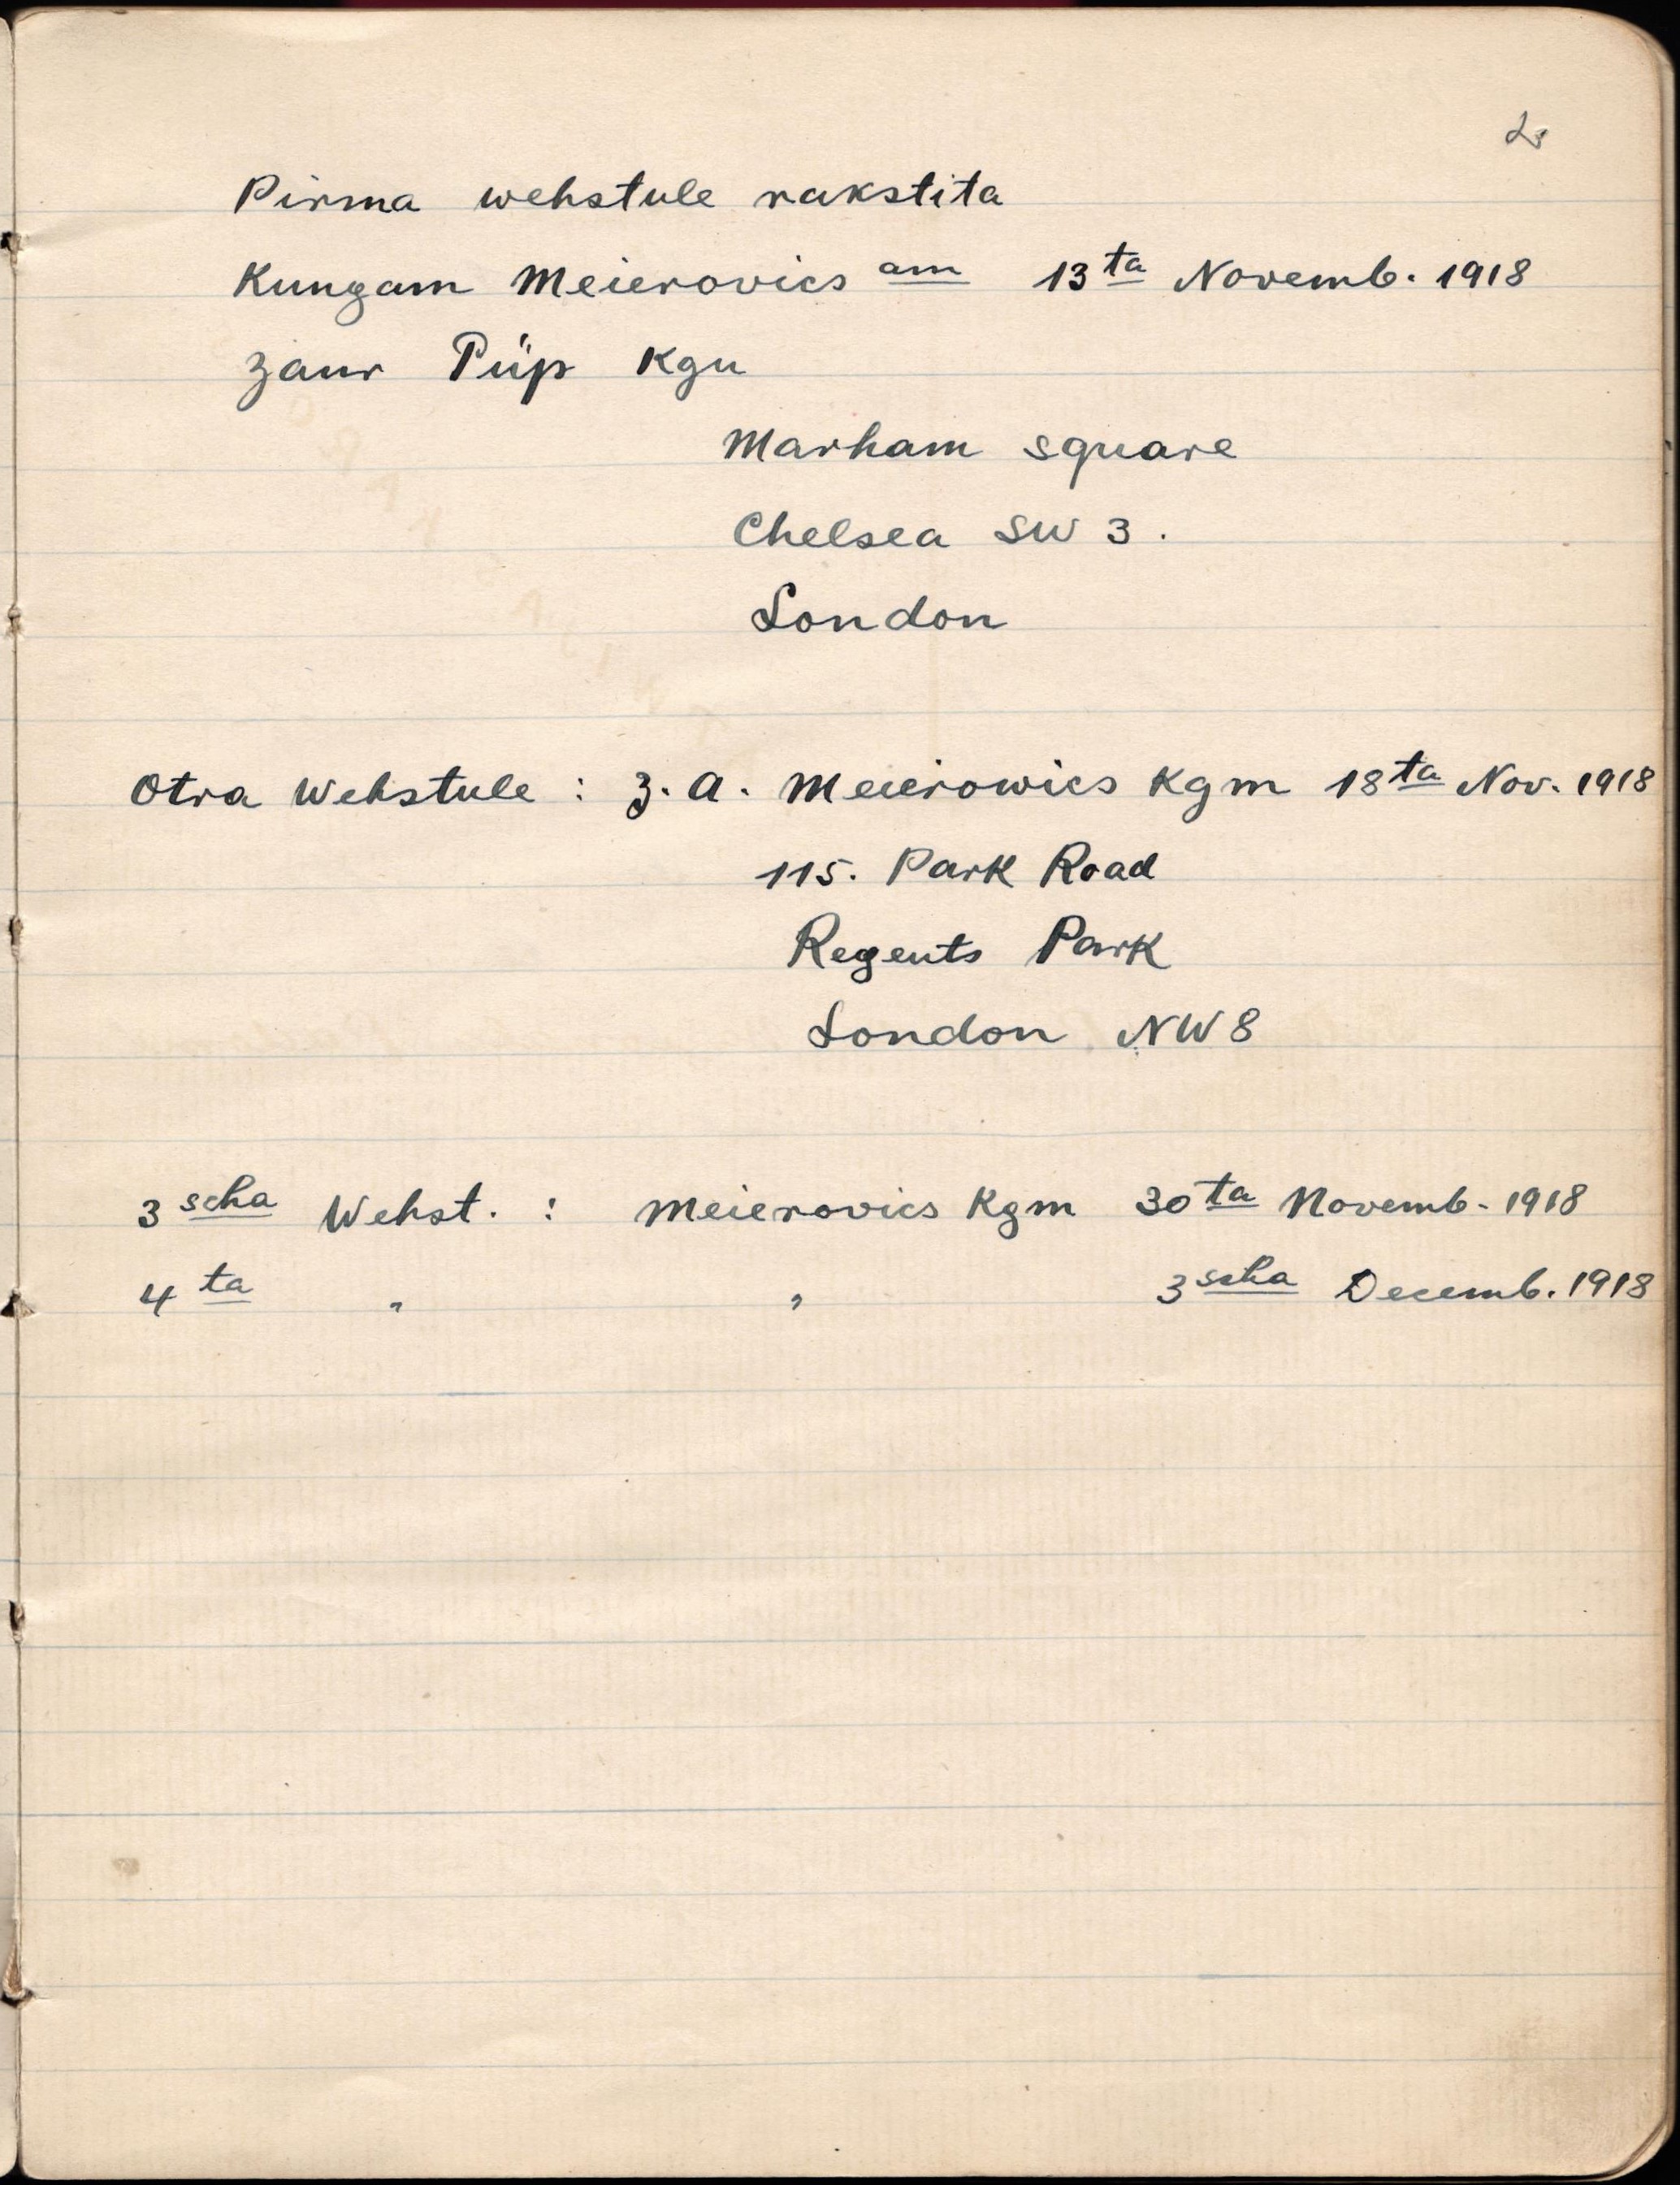 2
Pirma wehstule rakstita
Kungam Meierovics am 13ta Novemb. 1918
zaur Püp Kgu
Marham square
Chelsea SW 3.
London
Otra Wehstule : Z. A. Meierowics Kgm 18ta Nov. 1918
115. Park Road
Regents Park
London NW8
3scha Wehst. : Meierovics Kgm 30ta Novemb. 1918
4ta " " 3scha Decemb. 1918